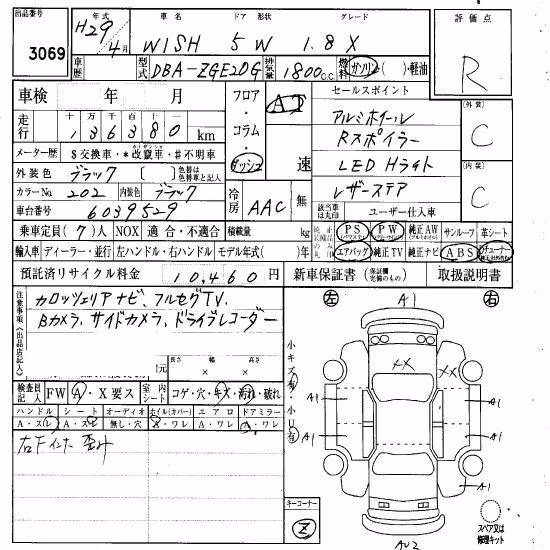 出品番号 年式 車名 ドア 形状 グレード 評価点
3069 H29年 4月 WISH 5W 1.8X R
車歴 型式 DBA-ZGE20G 排気量 1800c.c. 燃料 ガソリン( )・軽油
車検 年 月 フロア・コラム・ダッシュ AT 速 セールスポイント
走行 十万 千百十一 136380 km アルミホイール 【外装】 C
Rスポイラー
メーター歴 $交換車・*改竄車・#不明車 LED Hライト
外装色 ブラック [ ] 色替は色替車と記入 冷房 AAC 無 レザーステア 【内装】 C
カラーNo. 202 内装色 ブラック 該当車は丸印 ユーザー仕入車
車台番号 6039529
乗車定員(7)人 NOX 適合・不適合 積載量 kg PS PW 純正AW サンルーフ 革シート
輸入車 ディーラー・並行 左ハンドル・右ハンドル モデル年式( )年 エアバッグ 純正TV 純正ナビ ABS
預託済リサイクル料金 10,460円 新車保証書 取扱説明書
注意事項(出品店記入) カロッツェリアナビ、フルセグTV、
Bカメラ、サイドカメラ、ドライブレコーダー
長さ 幅 高さ
左 A1 右
小キズ有・小U有
XX XX
A1 A1
A1 A1
A1 A1
検査員記入 FW A・X要ス 室内シート コゲ・穴・キズ・汚れ・破れ
ハンドル シート オーディオ ホイル(カバー) エアロ ドアミラー
A・スレ A・スレ 無し・穴 A・ワレ A・ワレ A・ワレ
右Fインナー歪み
キーコーナー Z スペア又は修理キット
AU2